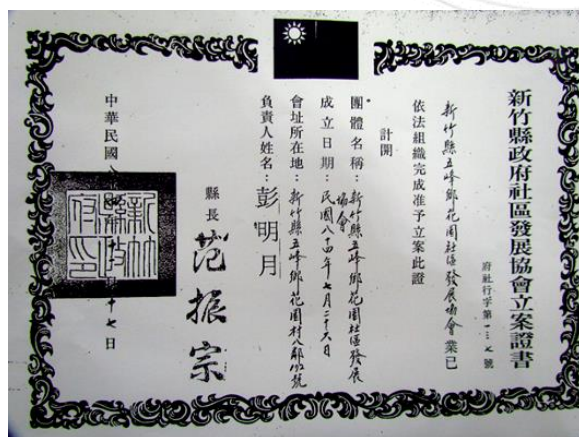 新竹縣政府社區發展協會立案證書
府社行字第一三七號
新竹縣五峰鄉花園社區發展協會業已
依法組織完成准予立案此證
計開
團體名稱：新竹縣五峰鄉花園社區發展
協會
成立日期：民國八十四年七月二十六日
會址所在地：新竹縣五峰鄉花園村八鄰
負責人姓名：彭明月
縣長 范振宗
新竹縣政府印
中華民國八十七日